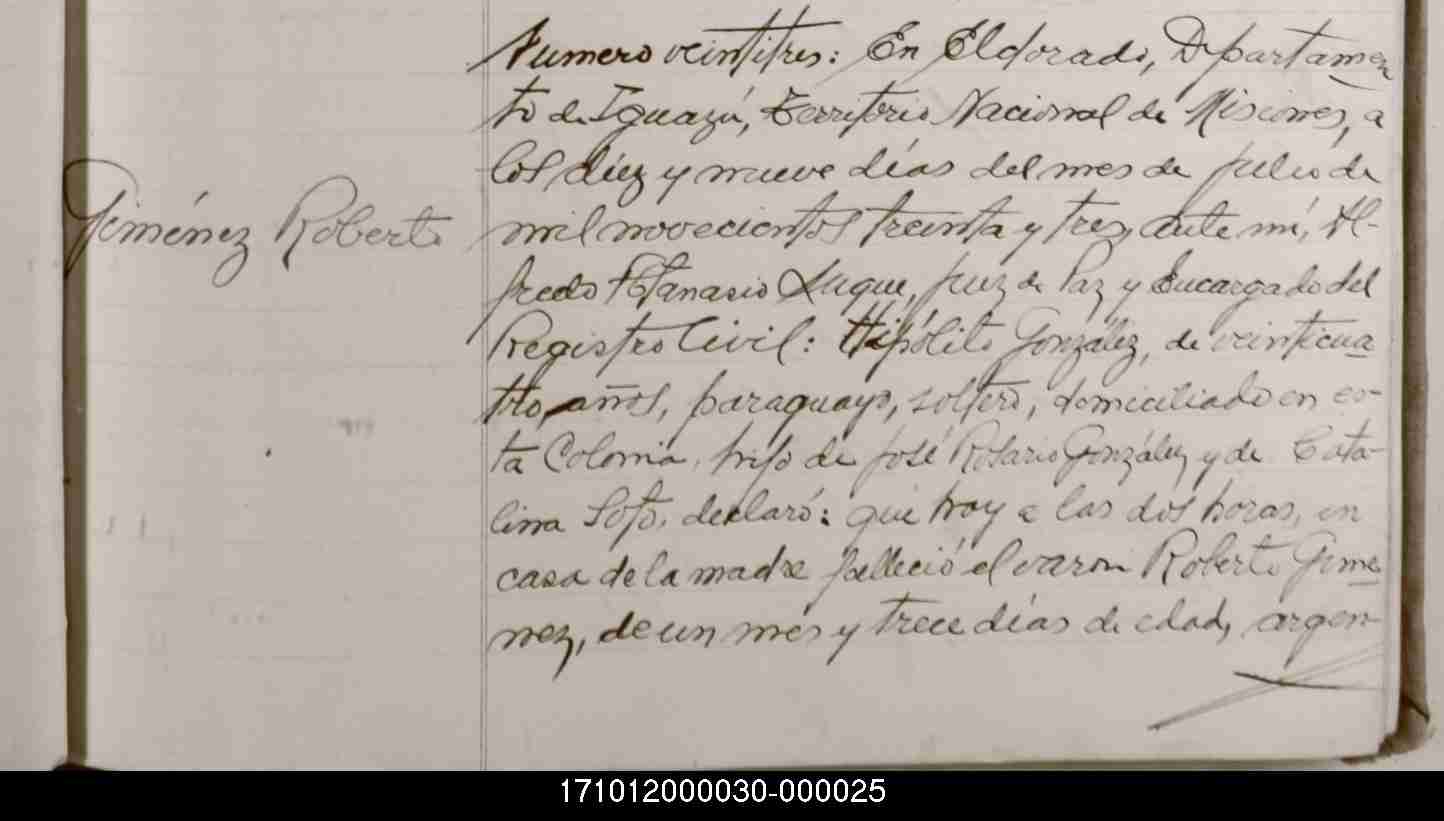 Giménez Roberto
Numero veintitres: En Eldorado, Departamen
to de Iguazú, Territorio Nacional de Misiones, a
los diez y nueve días del mes de julio de
mil novecientos treinta y tres, ante mí, Al-
fredo Atanasio Luque, Juez de Paz y Encargado del
Registro Civil: Hipólito González, de veinticua
tro, años, paraguayo, soltero, domiciliado en es-
ta Colonia, hijo de José Rosario González y de Cata-
lina Soto, declaró: que hoy a las dos horas, en
casa de la madre falleció el varon Roberto Gime
nez, de un mes y trece días de edad, argen-
171012000030-000025